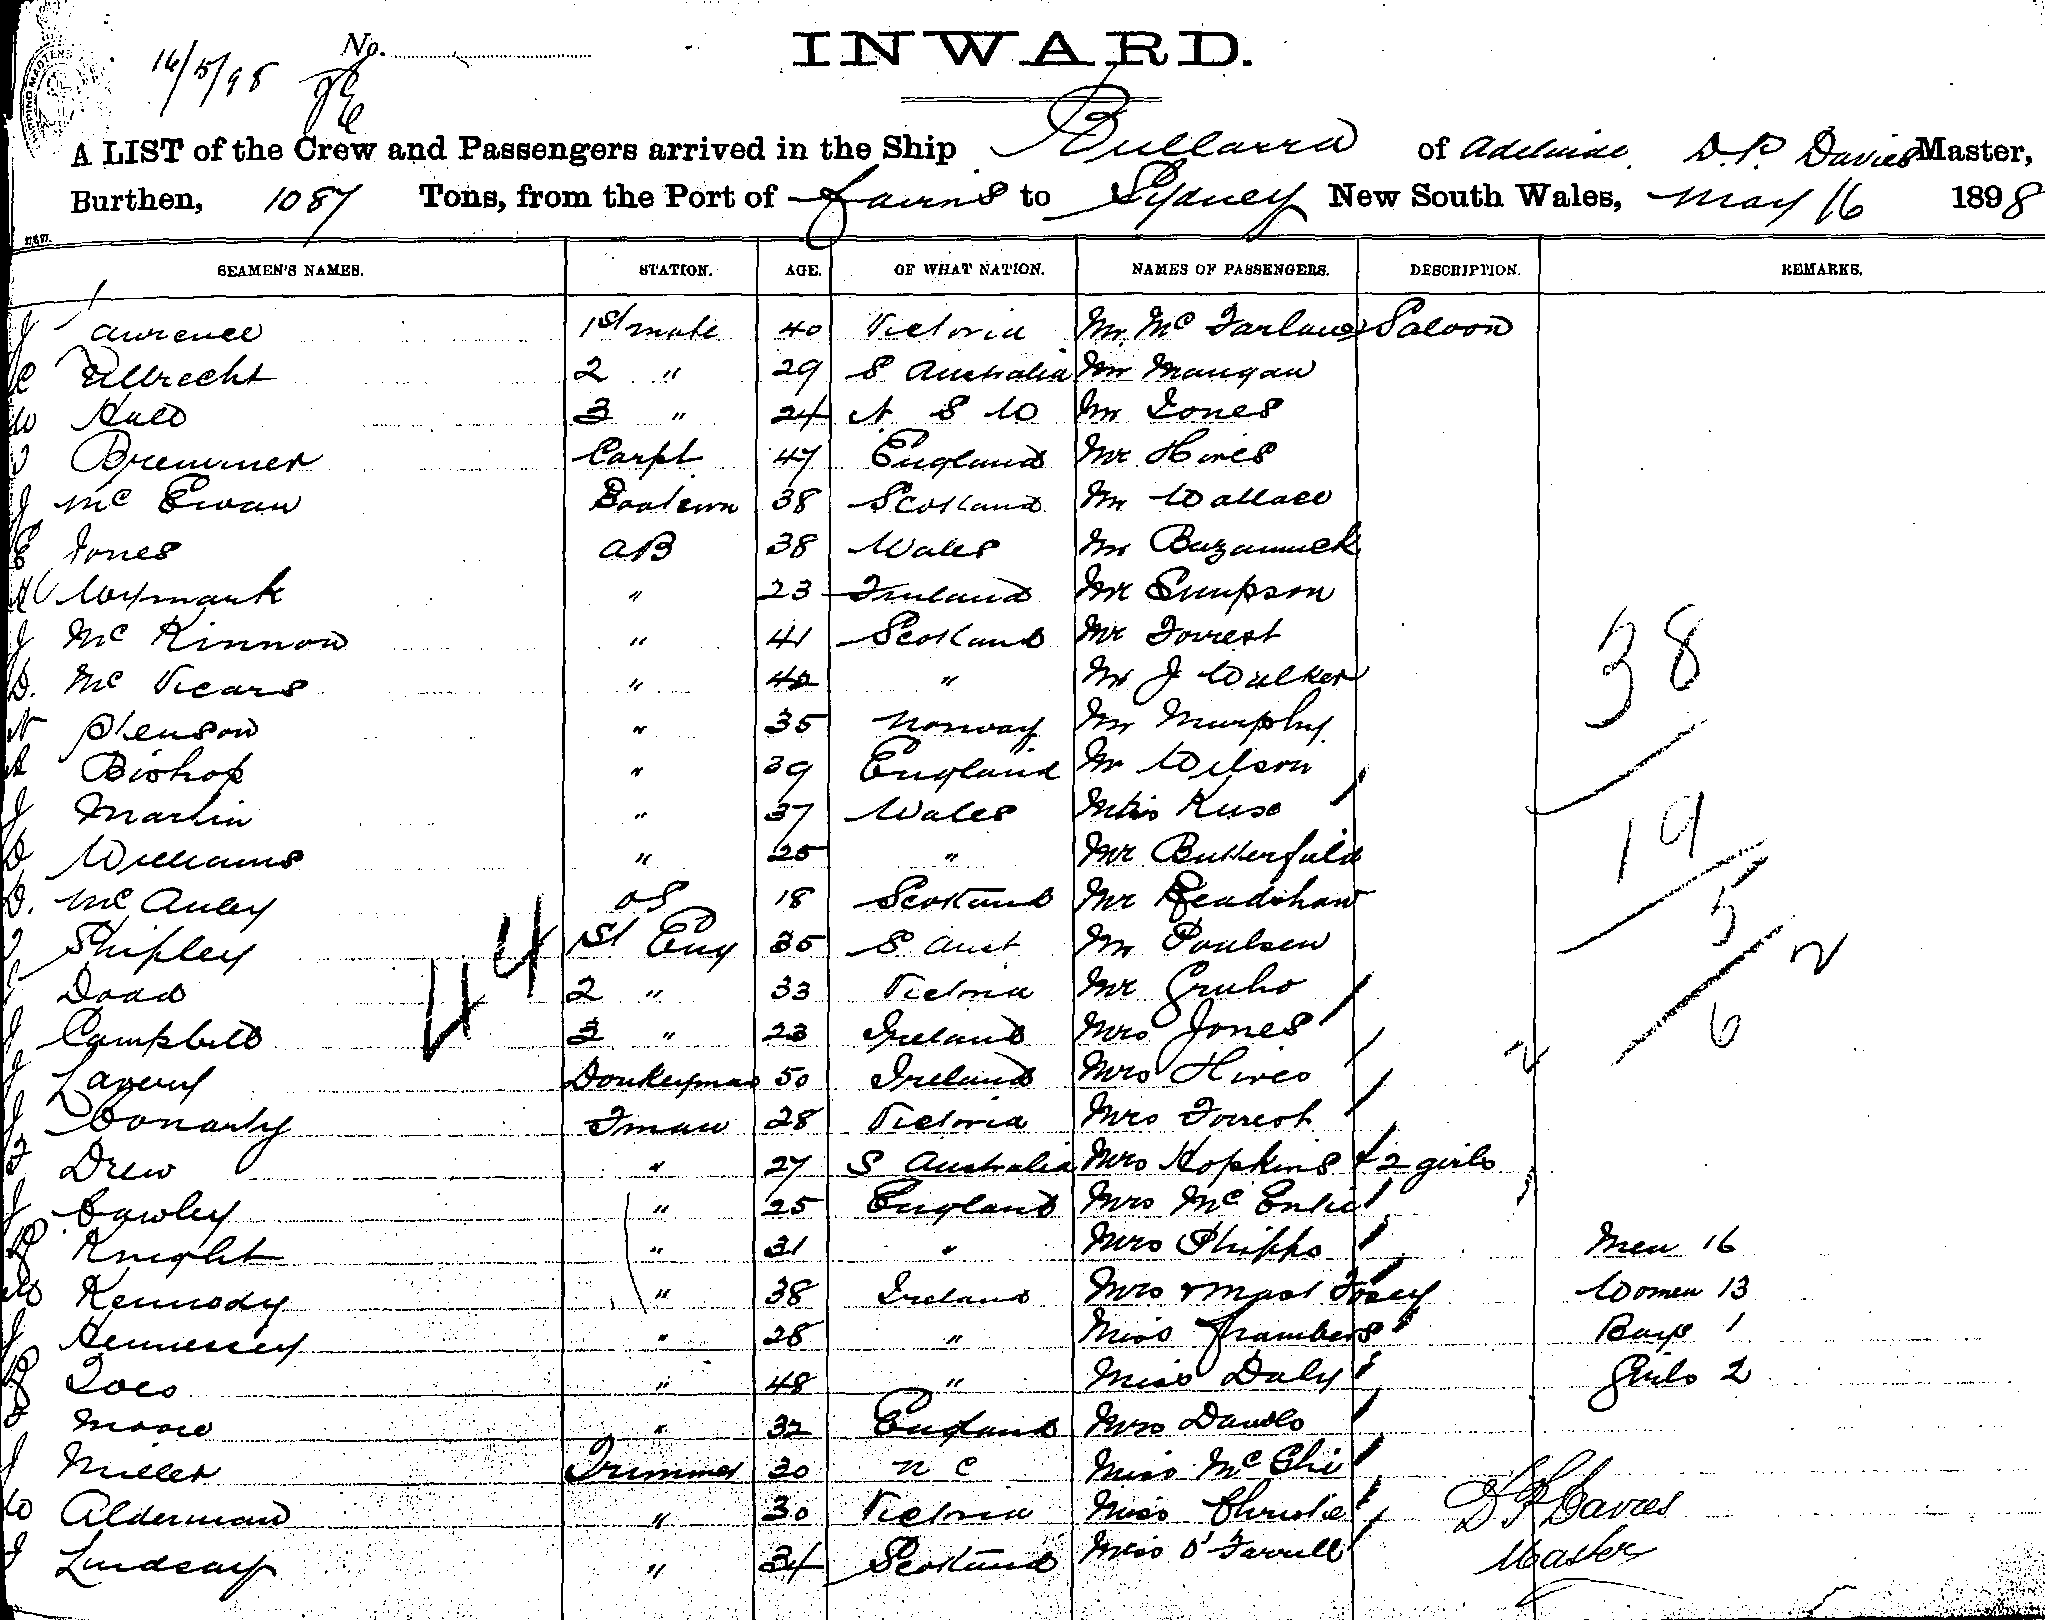 16/5/98 No.
INWARD.
A LIST of the Crew and Passengers arrived in the Ship Bullarra of Adelaide D.P. Davies Master,
Burthen, 1087 Tons, from the Port of Cairns to Sydney New South Wales, May 16 1898
SEAMEN'S NAMES. STATION. AGE. OF WHAT NATION. NAMES OF PASSENGERS. DESCRIPTION. REMARKS.
J Lawrence 1st mate 40 Victoria Mr. Mc Farlane Saloon
C Ulbrecht 2 " 29 S Australia Mr Mangan
W Hall 3 " 24 N S W Mr Jones
Bremmer Carpt 47 England Mr Hires
J Mc Ewan Boatswn 38 Scotland Mr Wallace
E Jones AB 38 Wales Mr
" 23 Finland Mr Simpson
J Mc Kinnon " 41 Scotland Mr Forrest
D. Mc Vicars " 42 " Mr J Walker
N Stenson " 35 Norway Mr Murphy
A Bishop " 39 England Mr Wilson
J Martin " 37 Wales Miss Ruse
D Williams " 25 " Mr Butterfield
D. Mc Auley OS 18 Scotland Mr Readshaw
Shipley 1st Eng 35 S Aust Mr Poulsen
Dodd 2 " 33 Victoria Mr
J Campbell 3 " 23 Ireland Mrs Jones
J Lavery Donkeyman 50 Ireland Mrs Hires
J Conarty Fman 28 Victoria Mrs Forrest
F Drew " 27 S Australia Mrs Hopkins & 2 girls
J Cawley " 25 England Mrs
Knight " 31 " Mrs Phipps
Kennedy " 38 Ireland Mrs & Mast Tosey
J Hennessey " 28 " Miss Chambers
" 48 " Miss Daly
Moore " 32 England Mrs
J Miller Trimmer 30 N C Miss Mc Ghie
W Alderman " 30 Victoria Miss Christie
J Lindsay " 34 Scotland Miss O'Farrell
44
38
19
5
2
6
Men 16
Women 13
Boys 1
Girls 2
D P Davies
Master